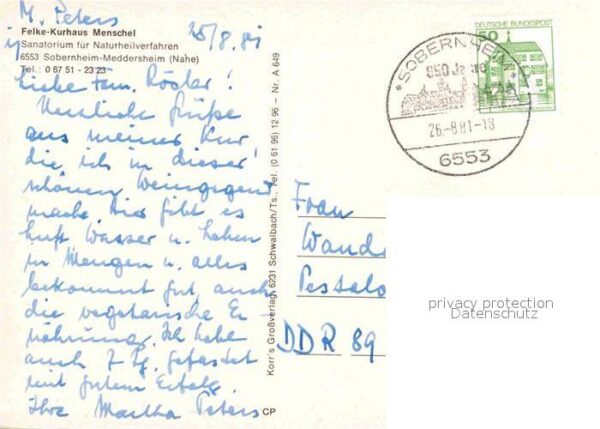 M. Peters
25/8.81
Felke-Kurhaus Menschel
Sanatorium für Naturheilverfahren
6553 Sobernheim-Meddersheim (Nahe)
Tel.: 0 67 51 - 23 23
Liebe Fam. Rösler!
Herzliche Grüße
aus meiner Kur,
die ich in dieser
schönen Weingegend
mache. Hier gibt es
Luft Wasser u.
in Mengen u. alles
bekommt gut, auch
die vegetarische Er-
nährung. Ich habe
auch 7 Tg. gefastet
mit gutem Erfolg.
Ihre Martha Peters
CP
Korr's Großverlag, 6231 Schwalbach/Ts., Tel. (0 61 96) 12 96 - Nr. A 649
DEUTSCHE BUNDESPOST
50
* SOBERNHEIM
650 Ja
26.-8.81-18
6553
Frau
Wand
Pestalo
DDR 89
privacy protection
Datenschutz